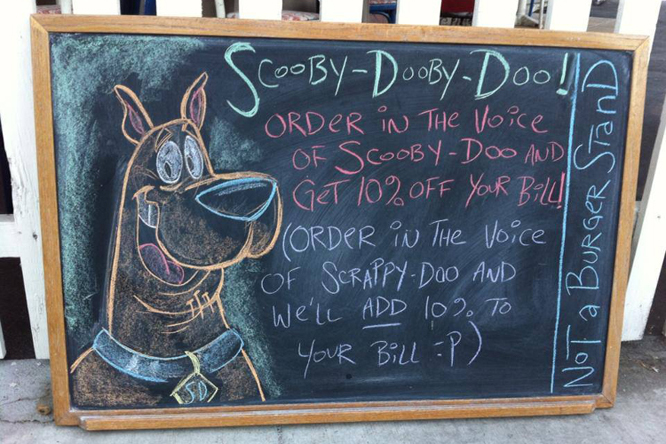 Scooby-Dooby-Doo!
ORDER IN THE VOICE
OF SCOOBY-DOO AND
GET 10% OFF YOUR BILL!
(ORDER IN THE VOICE
OF SCRAPPY-DOO AND
WE'LL ADD 10% TO
YOUR BILL =P)
NOT a BURGER STAND
SD